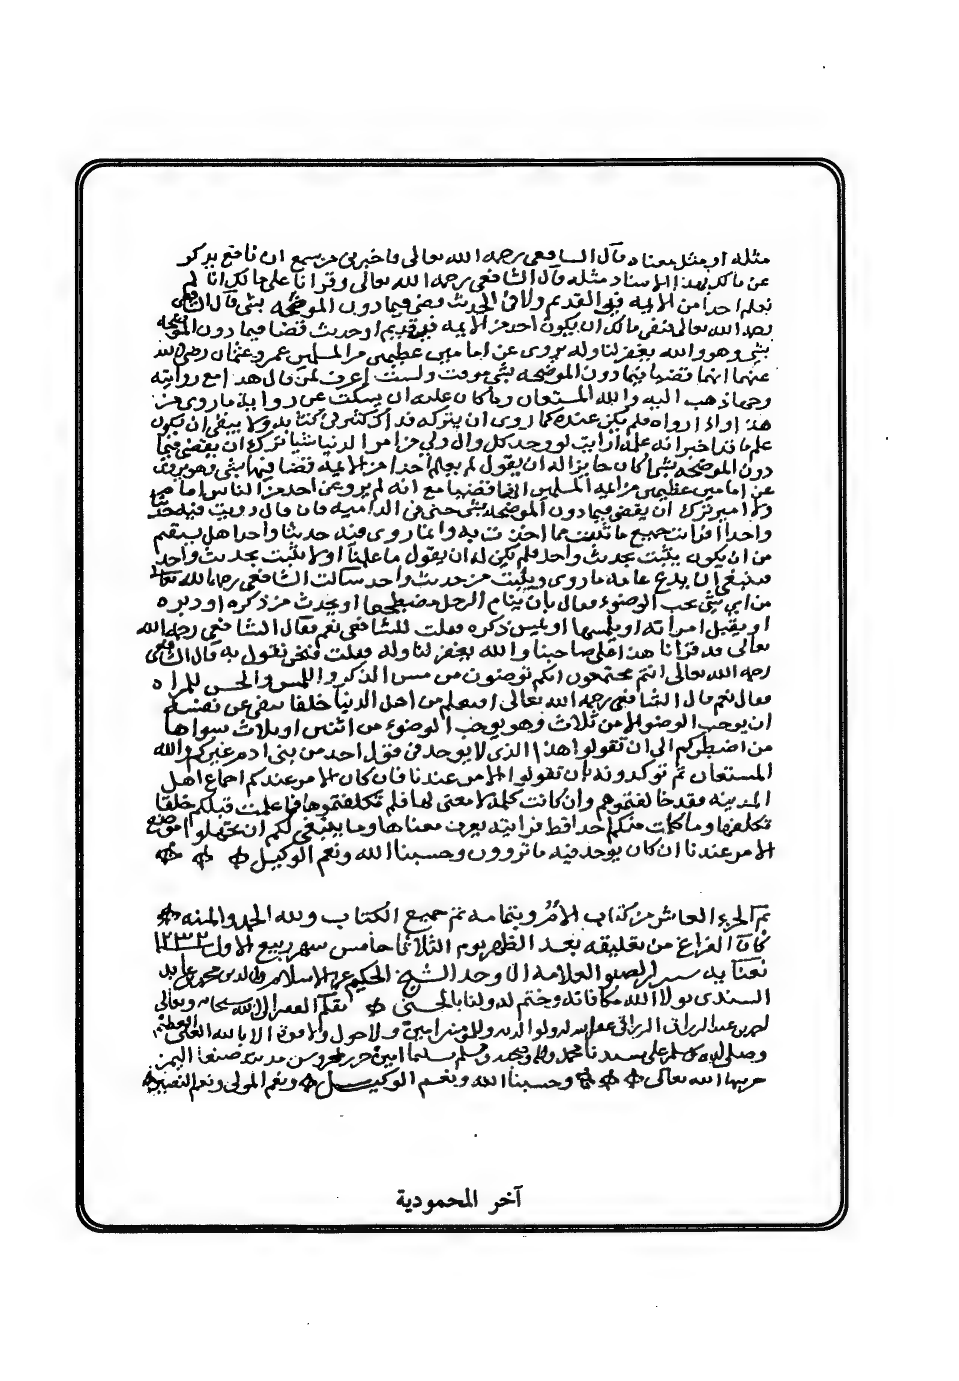 مثله او مثل معناه قال الشافعي رحمه الله تعالى واخبرني من سمع ابن نافع يذكر
عن مالك بهذا الاسناد مثله قال الشافعي رحمه الله تعالى وقرانا على مالك انا لم
نعلم احدا من الايمه في القديم ولا في الحديث قضى فيما دون الموضحه بشي قال الشافعي
رحمه الله تعالى فنفى مالك ان يكون احد من الايمه في قديم او حديث قضا فيما دون الموضحه
بشي وهو والله يغفر لنا وله يروى عن امامين عظيمين من المسلمين عمر وعثمان رضي الله
عنهما انهما قضيا فيما دون الموضحه بشي موقت ولست اعرف لمن قال هذا مع روايته
وجها ذهب اليه والله المستعان وما كان عليه ان يسكت عن رواية ما روى من
هذا او اذا رواه فلم يكن عنده كما روى ان يتركه قد اكثر في كتابه ولا ينبغي ان يكون
علم ما قد اخبر انه علمه ارايت لو وجد كل وال ولي من امر الدنيا شيا ترك ان يقضي فيما
دون الموضحه بشي ما كان جايزا له ان يقول لم نعلم احدا من الايمه قضا فيها بشي وهو يروى
عن امامين عظيمين من ايمه المسلمين انهما قضيا مع انه لم يرو عن احد من الناس امام
ولا امير ترك ان يقضي فيما دون الموضحه بشي حتى في الداميه فان قال رويت فيه حديثا
واحدا افرايت جميع ما ثبت مما اخذت به وانما روى فيه حديثا واحدا هل يستقيم
من ان يكون يثبت بحديث واحد فلم يكن له ان يقول ما علمنا او لا يثبت بحديث واحد
فينبغي ان يدع عامه ما روى ويثبت من حديث واحد سالت الشافعي رحمه الله تعالى
من اي شي يجب الوضوء فقال بان ينام الرجل مضطجعا او يحدث من ذكره او دبره
او يقبل امراته او يلمسها او يمس ذكره فقلت للشافعي نعم فقال الشافعي رحمه الله
تعالى قد قرانا هذا على صاحبنا والله يغفر لنا وله فقلت فنحن نقول به قال الشافعي
رحمه الله تعالى انتم مجتمعون انكم توضون من مس الذكر واللمس والجس للمراه
فقال نعم قال الشافعي رحمه الله تعالى افتعلم من اهل الدنيا خلقا ينفي عن نفسه
ان يوجب الوضو الا من ثلاث وهو يوجب الوضوء من اثنين او ثلاث سواها
من اضطركم الى ان تقولوا هذا الذي لا يوجد في قول احد من بني ادم غيركم والله
المستعان ثم توكدونه بان تقولوا الامر عندنا فان كان الامر عندكم اجماع اهل
المدينه فقد خالفتموهم وان كانت كلمه لا معنى لها فلم تكلفتموها فما علمت قبلكم خلقا
تكلفها وما كلمت منكم احدا قط فرايته يعرف معناها وما ينبغي لكم ان تجهلوا موضع
الامر عندنا ان كان يوجد فيه ما تروون وحسبنا الله ونعم الوكيل
تم الجزء العاشر من كتاب الام وبتمامه تم جميع الكتاب ولله الحمد والمنه
كان الفراغ من تعليقه بعد الظهر يوم الثلاثا خامس شهر ربيع الاول ١٢٣٢
بعنايه سيدي العلامه الاوحد الشيخ الحكيم عز الاسلام محمد عابد
السندي تولا الله مكافاته وختم له ولنا بالحسنى بقلم الفقير الى الله سبحانه وتعالى
غفر الله له ولوالديه وللمومنين امين ولا حول ولا قوة الا بالله العلي العظيم
وصلى الله وسلم على سيدنا محمد واله وصحبه وسلم امين من مدينه صنعا اليمن
حرسها الله تعالى وحسبنا الله ونعم الوكيل ونعم المولى ونعم النصير
آخر المحمودية